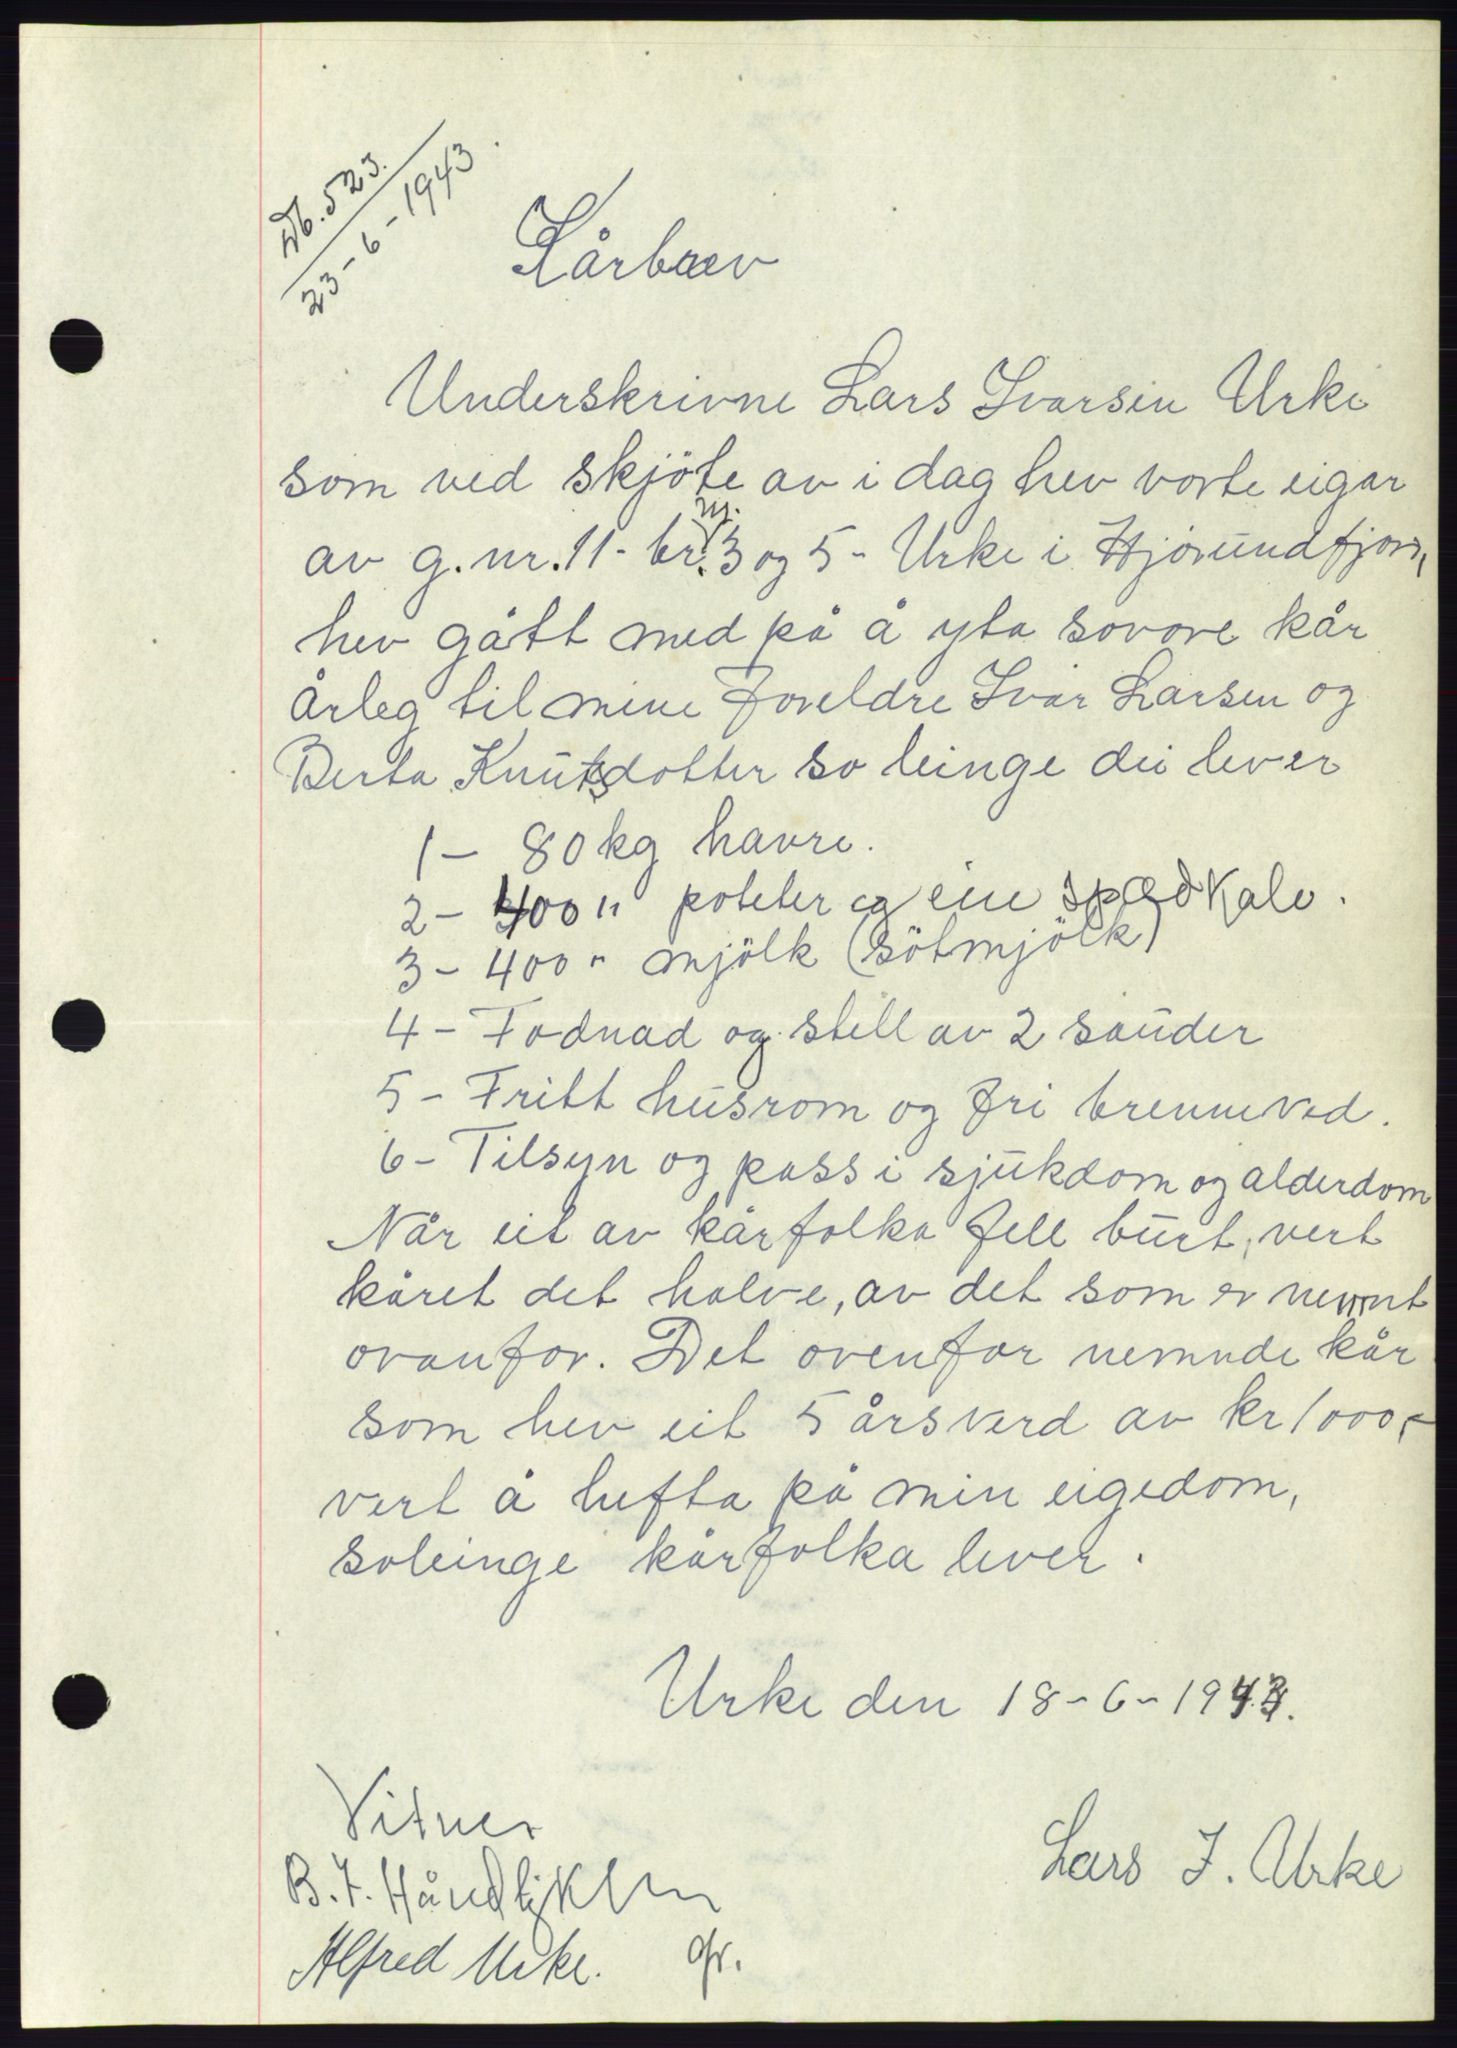 Db. 523.
23-6-1943.
Kårbrev
Underskrivne Lars Ivarsen Urke
som ved skjöte av i dag hev vorte eigar
av g.nr. 11 - br.nr. 3 og 5 - Urke i Hjörundfjord,
hev gått med på å yta sovore kår
årleg til mine foreldre Ivar Larsen og
Berta Knutsdotter so leinge dei lever
1 - 80 kg havre.
2 - 400 " poteter og ein spædkalv.
3 - 400 " mjölk (sötmjölk)
4 - Fodnad og stell av 2 sauder
5 - Fritt husrom og fri brenneved.
6 - Tilsyn og pass i sjukdom og alderdom
Når eit av kårfolka fell burt, vert
kåret det halve, av det som er nemnt
ovanfor. Det ovenfor nemnde kår
som hev eit 5 årsverd av kr 1000,-
vert å hefta på min eigedom,
soleinge kårfolka lever.
Urke den 18-6-1943.
Vitner
Lars I. Urke
B. I.
Alfred Urke.